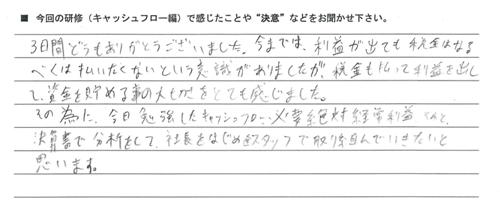 ■ 今回の研修（キャッシュフロー編）で感じたことや“決意”などをお聞かせ下さい。
3日間どうもありがとうございました。今までは、利益が出ても税金はなる
べくは払いたくないという意識がありましたが、税金も払って利益を出し
て、資金を貯める事の大もとをとても感じました。
その為に、今日勉強したキャッシュフロー、必要絶対経常利益
決算書で分析をして、社長をはじめ全スタッフで取り組んでいきたいと
思います。